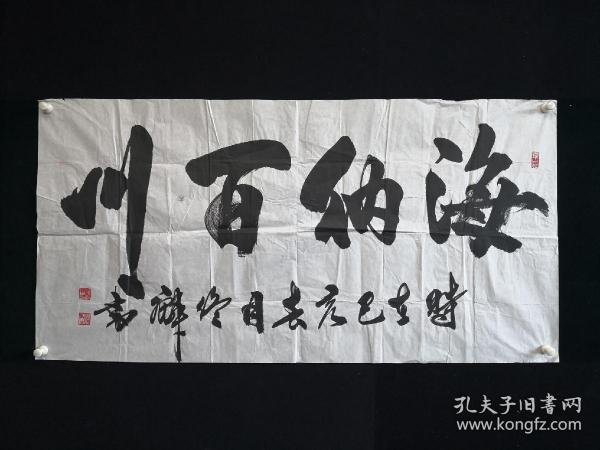 海纳百川
時在己亥春月
孔夫子旧書网
www.kongfz.com